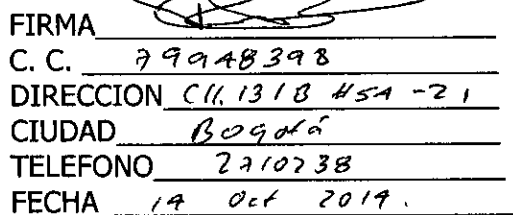 FIRMA
C. C. 79948398
DIRECCION Cll. 131B #5A -21
CIUDAD Bogotá
TELEFONO 2710238
FECHA 14 Oct 2014.